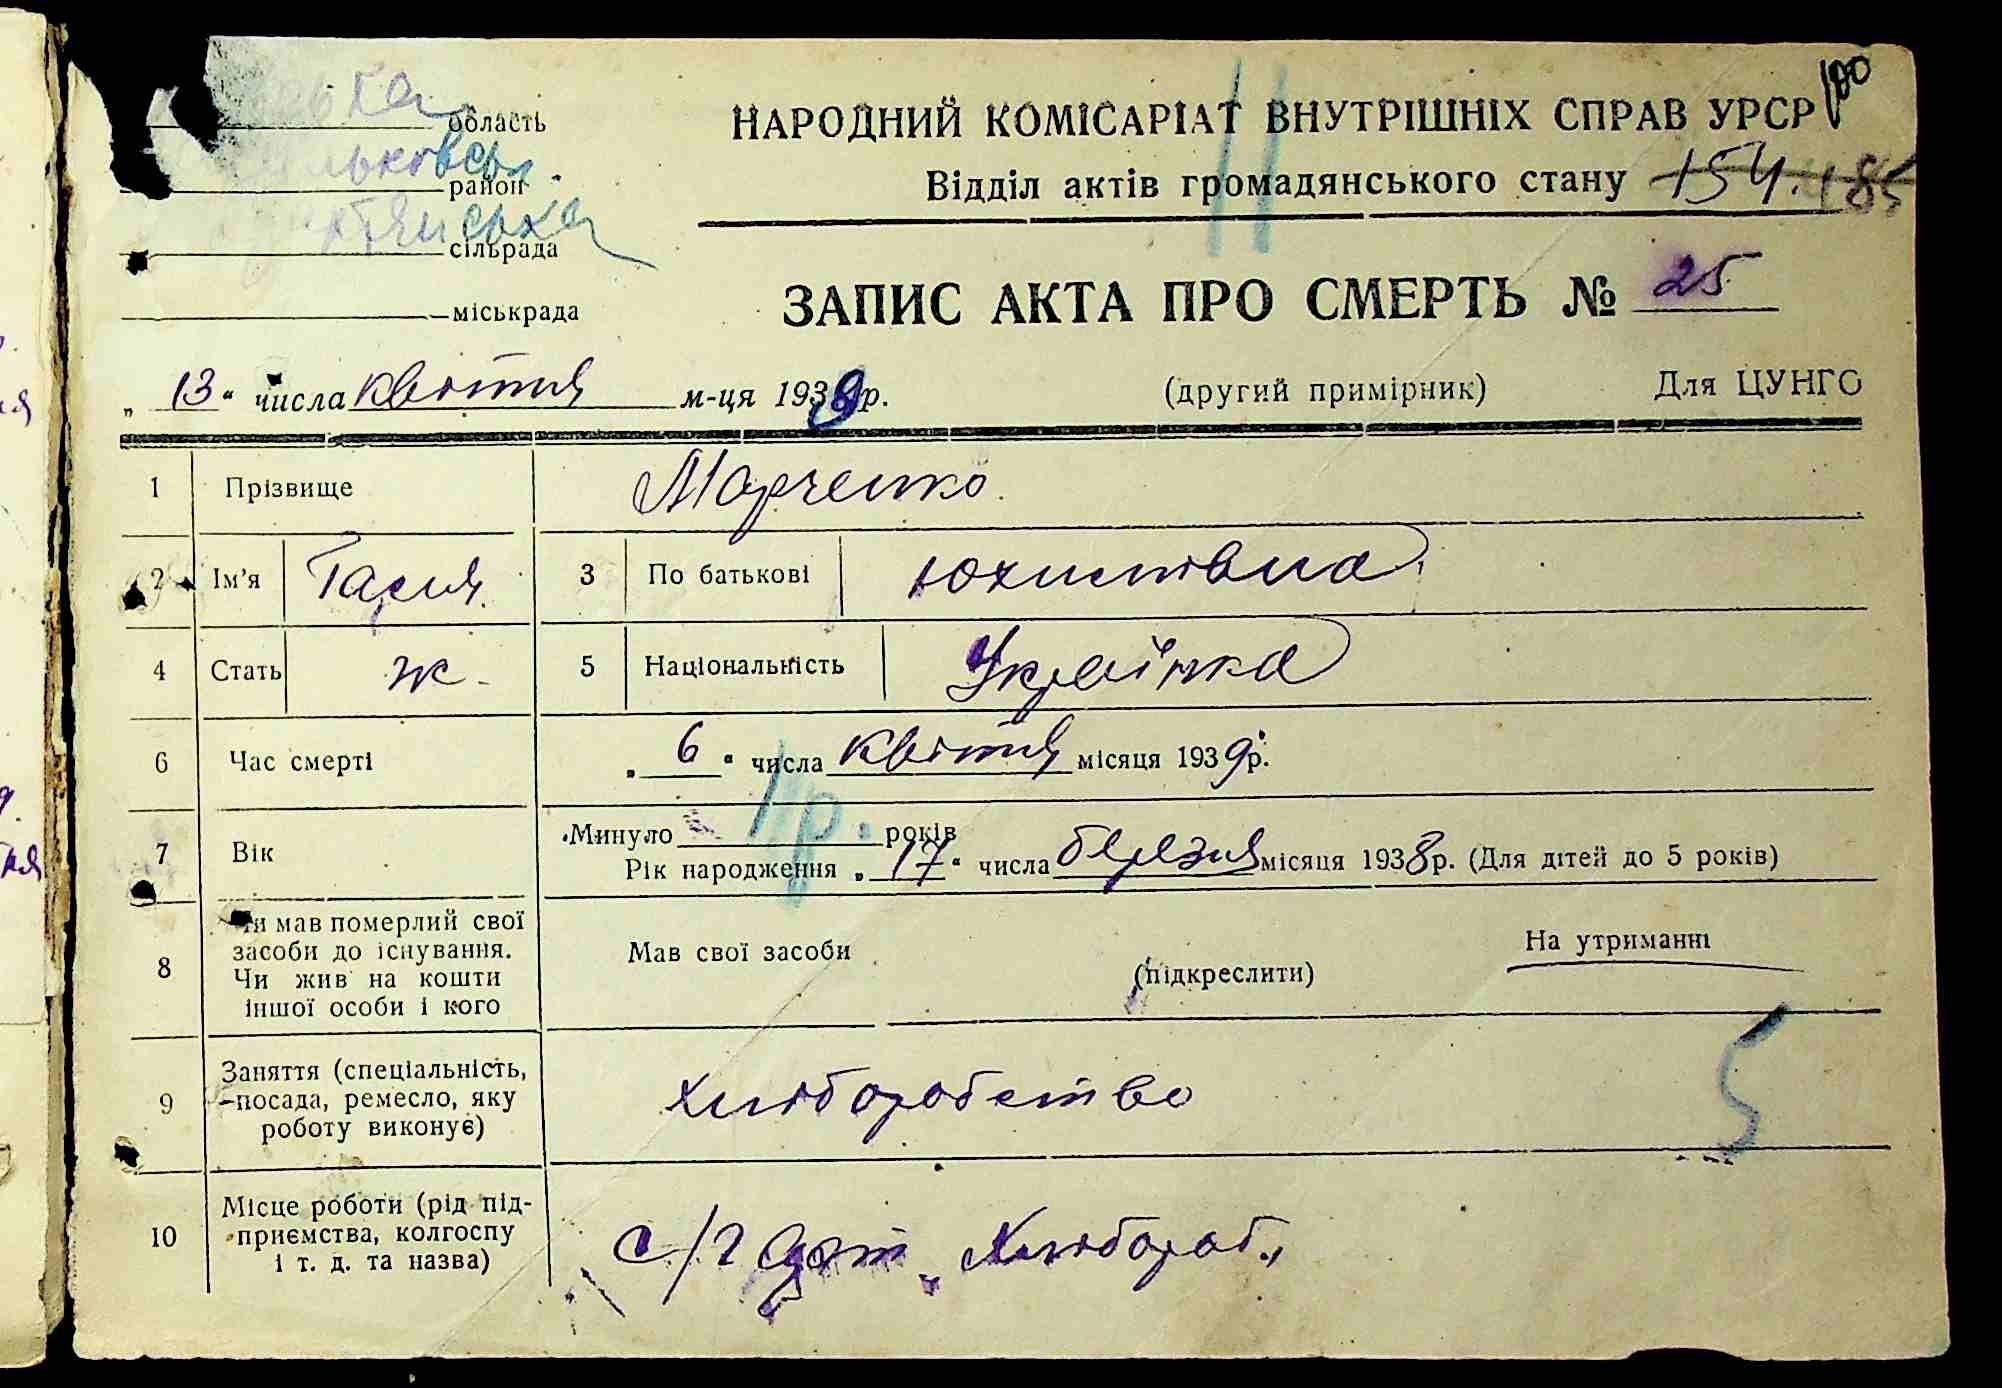 100
область
НАРОДНИЙ КОМІСАРІАТ ВНУТРІШНІХ СПРАВ УРСР
район
Відділ актів громадянського стану 154. 185
сільрада
міськрада
ЗАПИС АКТА ПРО СМЕРТЬ № 25
„ 13 “ числа квітня м-ця 1939 р.
(другий примірник) Для ЦУНГО
1 Прізвище Марченко
2 Ім’я Тасия 3 По батькові Юхимівна
4 Стать ж. 5 Національність Українка
6 Час смерті „ 6 “ числа квітня місяця 1939 р.
7 Вік Минуло 1 р. років
Рік народження „ 17 “ числа березня місяця 1938 р. (Для дітей до 5 років)
8 Чи мав померлий свої
засоби до існування.
Чи жив на кошти
іншої особи і кого
Мав свої засоби (підкреслити) На утриманні
9 Заняття (спеціальність,
посада, ремесло, яку
роботу виконує)
Хліборобство
5
10 Місце роботи (рід під-
приємства, колгоспу
і т. д. та назва)
с/г арт „Хлібороб“